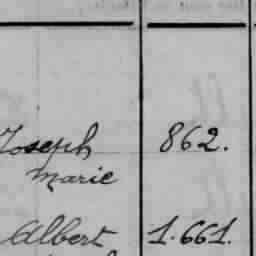 Joseph 862.
Marie
Albert 1.661.